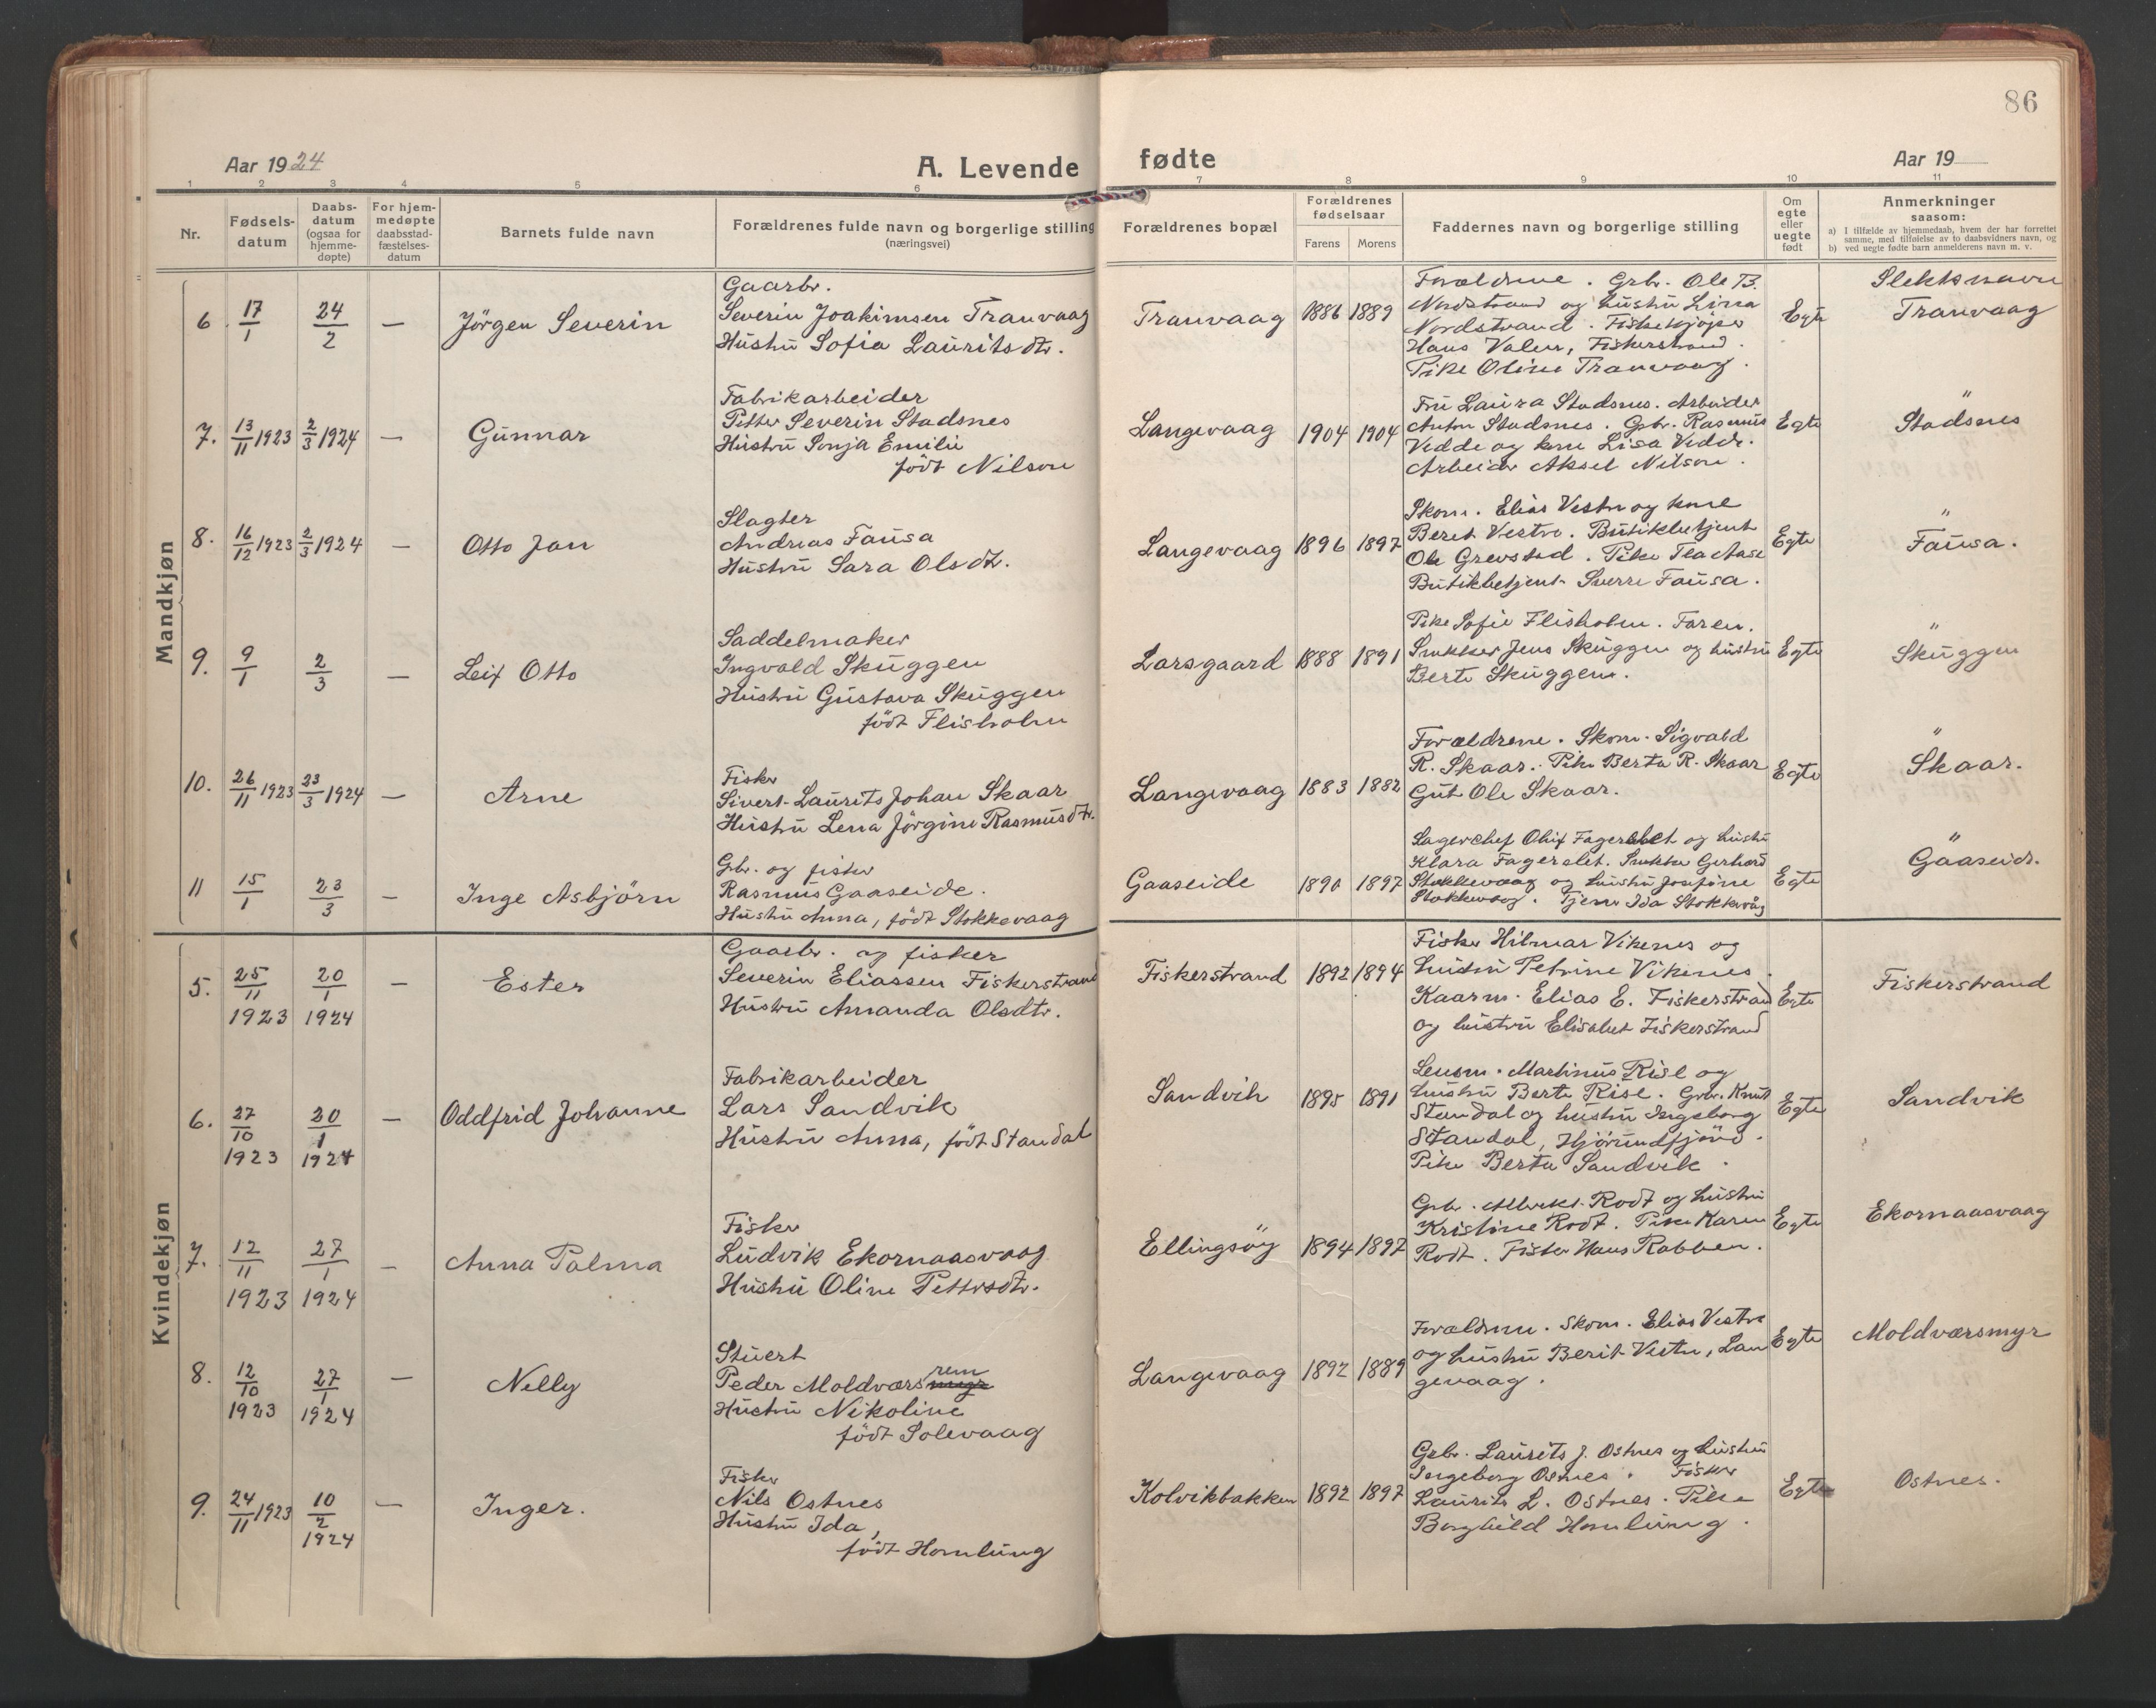 86
Aar 1924
A. Levende fødte
Aar 19
1 2 3 4 5 6 7 8 9 10 11
Nr.
Fødsels-
datum
Daabs-
datum
(ogsaa for
hjemme-
døpte)
For hjem-
medøpte
daabsstad-
fæstelses-
datum
Barnets fulde navn
Forældrenes fulde navn og borgerlige stilling
(næringsvei)
Forældrenes bopæl
Forældrenes
fødselsaar
Farens Morens
Faddernes navn og borgerlige stilling
Om
egte
eller
uegte
født
Anmerkninger
saasom:
a) I tilfælde av hjemmedaab, hvem der har forrettet
samme, med tilføielse av to daabsvidners navn, og
b) ved uegte fødte barn anmelderens navn m. v.
Mandkjøn
6 17/1 24/2 — Jörgen Severin
Gaarbr.
Severin Joakimsen Tranvaag
Hustrü Sofia Lauritsdtr.
Tranvaag 1886 1889
Forældrene. Grbr. Ole B.
Nordstrand og hustrü Lina
Nordstrand. Fiskekjöper
Hans Valen, Fiskerstrand.
Pike Oline Tranvaag.
Egte
Slektsnavn
Tranvaag
7. 13/11 1923 2/3 1924 — Günnar
Fabrikarbeider
Petter Severin Stadsnes
Hüstrü Sonja Emilie
födt Nilson
Langevaag 1904 1904
Frü Laura Stadsnes. Arbeider
Anton Stadsnes. Grbr. Rasmus
Vedde og kone Lisa Vedde.
Arbeider Aksel Nilson.
Egte
"
Stadsnes
8. 16/12 1923 2/3 1924 — Otto Jan
Slagter
Andreas Faüsa
Hüstrü Sara Olsdtr.
Langevaag 1896 1897
Skom. Elias Vestre og kone
Beret Vestre. Bütikbetjent
Ole Grevstad. Pike Tea Aase
Bütikbetjent Sverre Faüsa.
Egte
"
Faüsa.
9. 9/1 2/3 — Leif Otto
Saddelmaker
Ingvald Sküggen
Hüstrü Güstava Sküggen
födt Flisholm
Larsgaard 1888 1891
Pike Sofie Flisholm. Faren.
Snekker Jens Sküggen og hüstrü
Berte Sküggen.
Egte
"
Sküggen
10. 26/11 1923 23/3 1924 — Arne
Fisker
Sivert Laurits Johan Skaar
Hüstrü Lena Jörgine Rasmusdtr.
Langevaag 1883 1882
Forældrene. Skom. Sigvald
R. Skaar. Pike Berta R. Skaar
Güt Ole Skaar.
Egte
"
Skaar.
11 15/1 23/3 — Inge Asbjörn
Grbr. og fisker
Rasmus Gaaseide.
Hüstrü Anna, födt Stokkevaag
Gaaseide 1890 1897
Lagerchef Oluf Fagerslet og hüstrü
Klara Fagerslet. Snekker Gerhard
Stokkevaag og hüstrü Josefine
Stokkevaag. Tjener Ida Stokkevåg
Egte
"
Gaaseide.
Kvindekjøn
5. 25/11 1923 20/1 1924 — Ester
Gaarbr. og fisker
Severin Eliassen Fiskerstrand
Hüstrü Amanda Olsdtr.
Fiskerstrand 1892 1894
Fisker Hilmar Vikenes og
hüstrü Petrine Vikenes.
Kaarm. Elias E. Fiskerstrand
og hüstrü Elisabet Fiskerstrand
Egte
Fiskerstrand
6. 27/10 1923 20/1 1924 — Oddfrid Johanne
Fabrikarbeider
Lars Sandvik
Hüstrü Anna, födt Standal
Sandvik 1895 1891
Lensm. Martinus Rise og
hüstrü Berte Rise. Grbr. Knut
Standal og hüstrü Ingeborg
Standal, Hjörundfjörd.
Pike Berta Sandvik.
Egte
Sandvik
7. 12/11 1923 27/1 1924 — Anna Palma
Fisker
Lüdvik Ekornaasvaag
Hüstrü Oline Pettersdtr.
Ellingsöy 1894 1897
Grbr. Albrekt Rodt og hüstrü
Kristine Rodt. Pike Karen
Rodt. Fisker Hans Rabben.
Egte
Ekornaasvaag
8. 12/10 1923 27/1 1924 — Nelly
Stüert
Peder Moldværsmyr rem
Hüstrü Nikoline
födt Solevaag
Langevaag 1892 1889
Forældrene. Skom. Elias Vestre
og hüstrü Berit Vestre, Lan
gevaag.
Egte
Moldværsmyr
9. 24/11 1923 10/2 1924 — Inger.
Fisker
Nils Ostnes
Hüstrü Ida,
födt Homlüng
Kolvikbakken 1892 1897
Grbr. Laurits J. Ostnes og hüstrü
Ingeborg Ostnes. Fisker
Laurits L. Ostnes. Pike
Borghild Homlüng.
Egte
Ostnes.